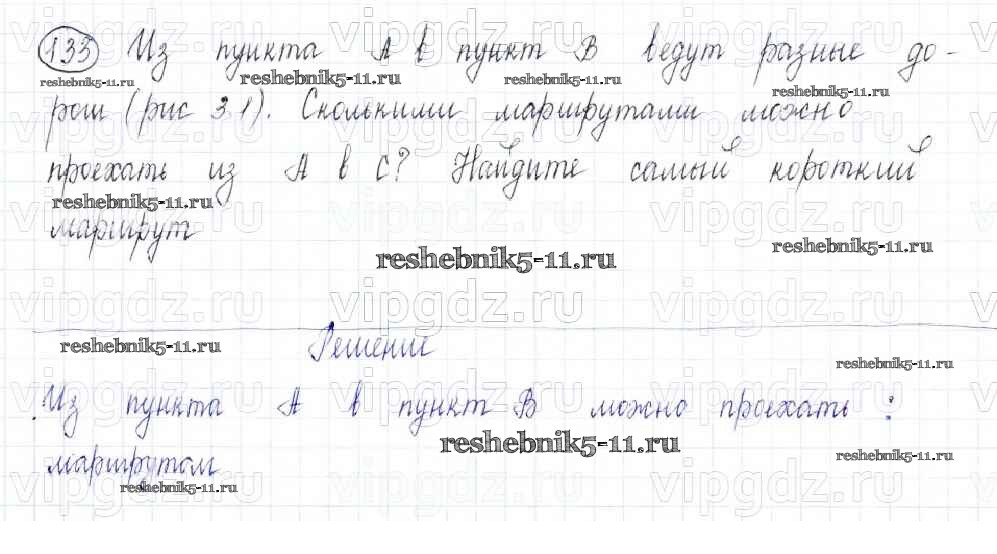 135 Из пункта А в пункт В ведут разные до-
роги (рис 31). Сколькими маршрутами можно
проехать из А в С? Найдите самый короткий
маршрут
Решение
Из пункта А в пункт В можно проехать :
маршрутом
reshebnik5-11.ru
vipgdz.ru